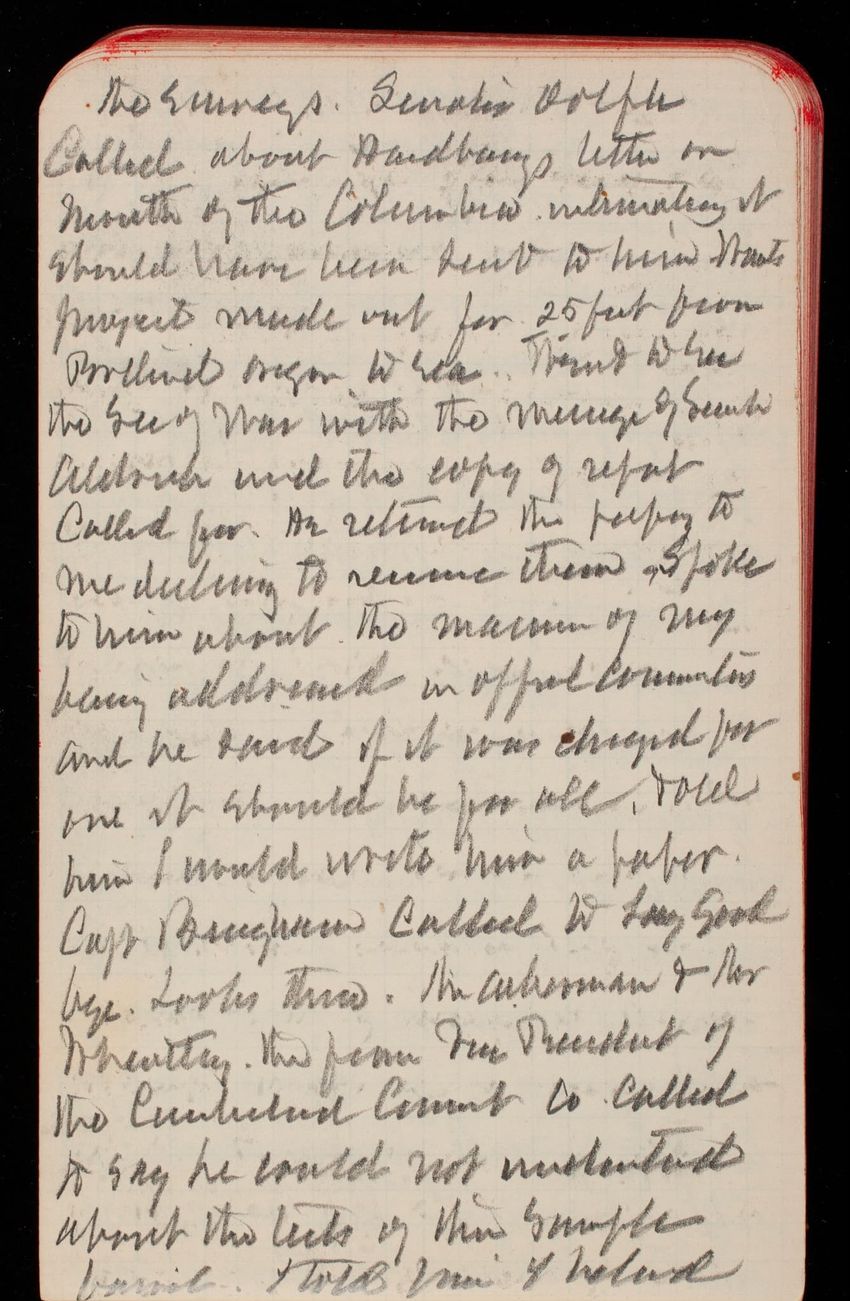 the surveys. Senator Dolph
Called about Handburys letter on
Mouth of the Columbia intimating it
should have been sent to him Wants
project made out for 25 feet from
Portland Oregon to sea. Went to see
the Sec of War with the message of Senator
Aldrich and the copy of report
Called for. He returned the papers to
me declining to receive them. Spoke
to him about the manner of my
being addressed in official communications
and he said if it was changed for
one it should be for all. I told
him I would write him a paper.
Capt Bingham Called to say Good
bye. Looks thin. Mr Ackerman & Mr
Wheatley. the former Vice President of
the Cumberland Cement Co called
to say he could not understand
about the tests of their sample
barrel. I told him I